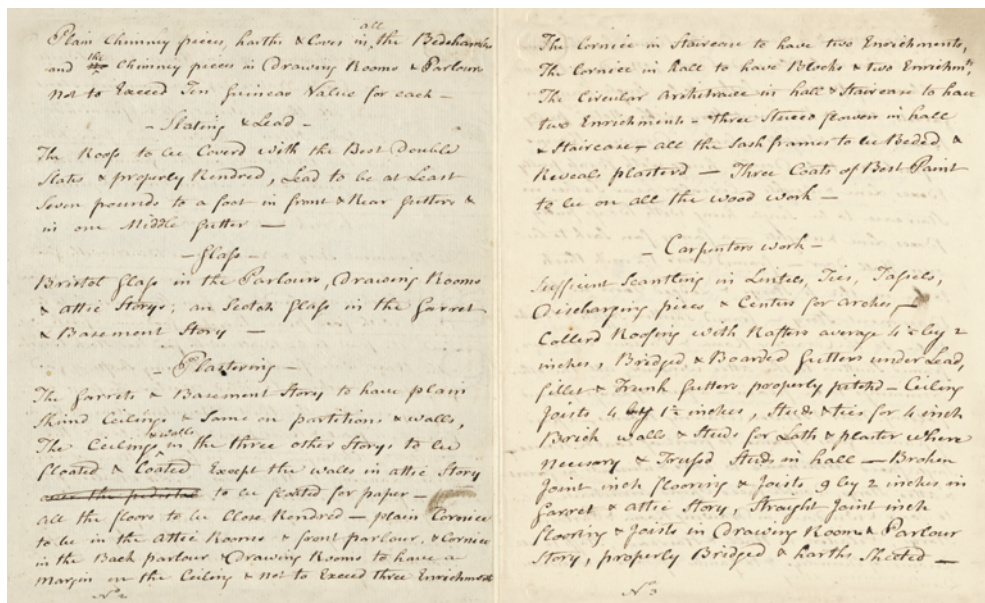 Plain Chimney pieces, harths & Coves in all the Bedchambers
and the Chimney pieces in Drawing Rooms & Parlour
not to Exceed Ten Guineas Value for each —
- Slating & Lead -
The Roofs to be Coverd with the Best Double
Slates & properly Rendred, Lead to be at Least
Seven pounds to a foot in front & Rear Gutters &
in one Middle Gutter —
- Glass -
Bristol Glass in the Parlours, Drawing Rooms
& attic Storys; an Scotch Glass in the Garret
& Basement Story —
- Plastering -
The Garrets & Basement Story to have plain
Skind Ceilings & Same on partitions & walls,
The Ceilings & walls in the three other Storys to be
floated & Coated Except the walls in attic Story
over the pedistal to be floated for paper —
all the floors to be Close Rendred — plain Cornice
to be in the Attic Rooms & front parlour, & Cornice
in the Back parlour & Drawing Rooms to have a
Margin on the Ceiling & not to Exceed three Enrichments
No 2
The Cornice in Staircase to have two Enrichments,
The Cornice in hall to have Blocks & two Enrichmts,
The Circular Architraice in hall & Staircase to have
two Enrichments - three Stucco flowers in hall
& Staircase - all the Sash frames to be Beded &
Reveals plasterd — Three Coats of Best Paint
to be on all the wood work —
- Carpenters work -
Sufficient Scantling in Lintels, Ties, Tassels,
Discharging pieces & Centers for arches —
Collerd Roofing with Rafters average 4½ by 2
inches, Bridged & Boarded Gutters under Lead,
fillet & Trunk Gutters properly pitchd — Ceiling
Joists 4 by 1½ inches, Studs & ties for 4 inch
Brick walls & Studs for Lath & plaster where
necessory & Trussd Studs in hall — Broken
Joint inch flooring & Joists 9 by 2 inches in
Garret & attic Story, Straight Joint inch
flooring & Joists in Drawing Room & Parlour
Story, properly Bridged & harths Sheeted —
No 3